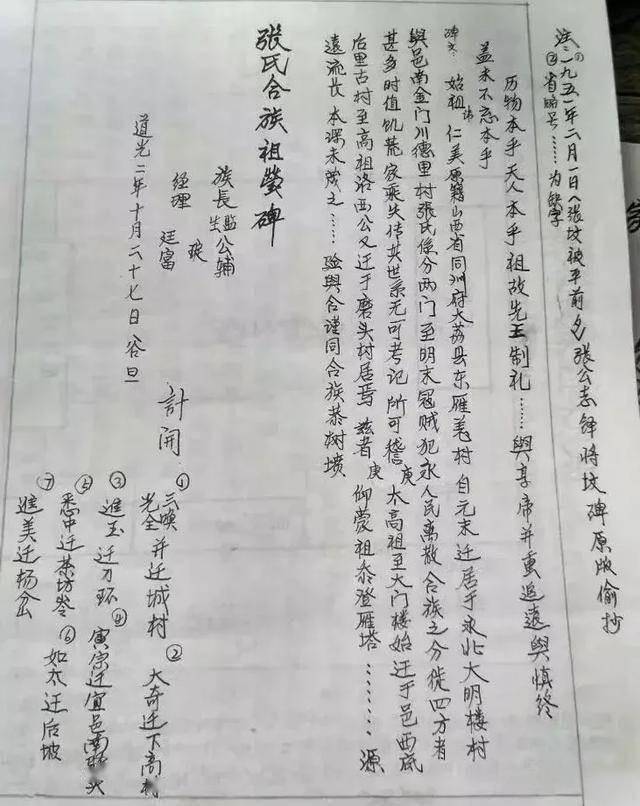 注：①一九五一年二月一日（张坟被平前夕）张公志铎将坟碑原版偷抄
②省略号……为缺字
历物本乎天人本乎祖故先王制礼……與享帝并重追遠與慎终
盖未不忘本乎
碑文：始祖讳仁美原籍山西省同州府大荔县东雁毛村自元末迁居于永北大明楼村
與邑南金门川德里村張氏係分两门至明末寇贼犯永人民離散合族之分徙四方者
甚多时值饥荒家乘失传其世系无可考记所可稽庚太高祖至大门楼始迁于邑西底
后里古村至高祖洛西公又迁于磨头村居焉兹者庚仰蒙祖泰登雁塔……源
遠流长本深未茂之……验與合谨同合族恭树墳
張氏合族祖塋碑
族長監生公輔
瑛
经理廷富
道光二年十月二十七日谷旦
計開
①三唤光全并迁城村②大奇迁下高
③進玉迁刀环④寅宗迁宜邑南头
⑤悉中迁茶坊岺⑥如木迁后坡
⑦進美迁杨